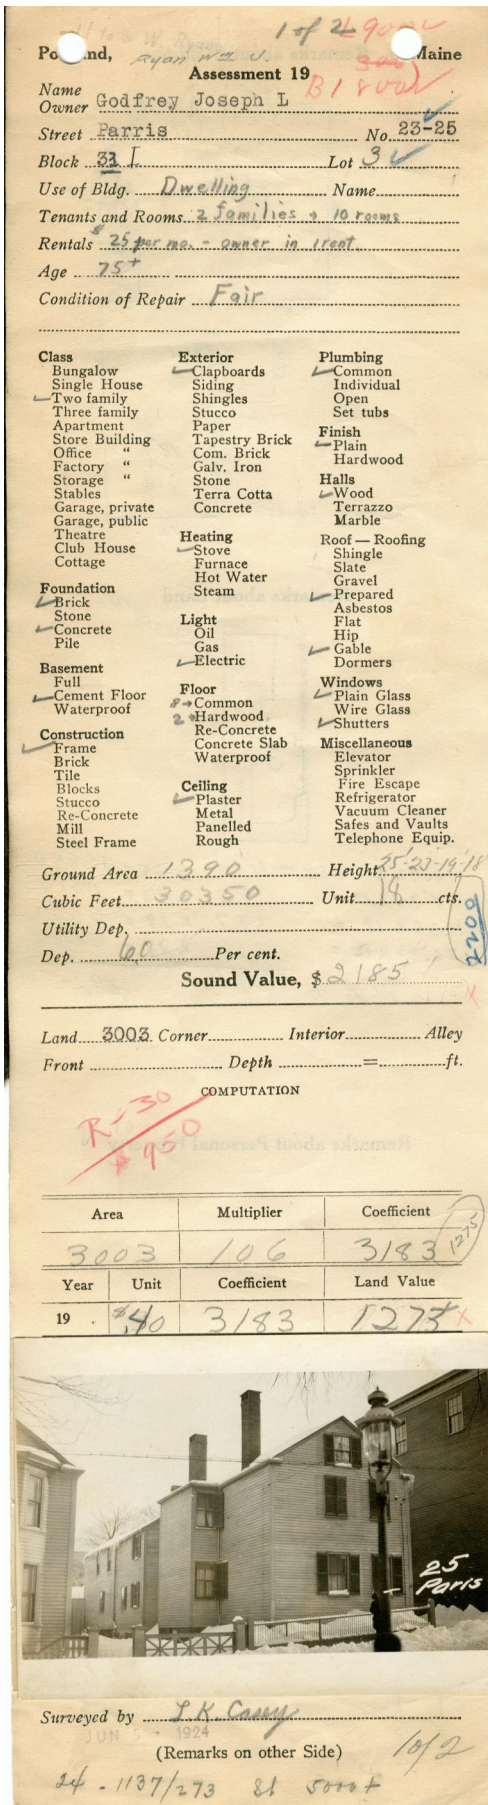 1 of 2 L 900
Portland, Ryan Wm J. Maine
Assessment 19 B 1800
Name
Owner Godfrey Joseph L
Street Parris No. 23-25
Block 33 I Lot 3
Use of Bldg. Dwelling Name
Tenants and Rooms 2 families → 10 rooms
Rentals $25 per mo. - owner in 1 rent.
Age 75+
Condition of Repair Fair
Class
Bungalow
Single House
Two family
Three family
Apartment
Store Building
Office "
Factory "
Storage "
Stables
Garage, private
Garage, public
Theatre
Club House
Cottage
Foundation
Brick
Stone
Concrete
Pile
Basement
Full
Cement Floor
Waterproof
Construction
Frame
Brick
Tile
Blocks
Stucco
Re-Concrete
Mill
Steel Frame
Exterior
Clapboards
Siding
Shingles
Stucco
Paper
Tapestry Brick
Com. Brick
Galv. Iron
Stone
Terra Cotta
Concrete
Heating
Stove
Furnace
Hot Water
Steam
Light
Oil
Gas
Electric
Floor
8 → Common
2 → Hardwood
Re-Concrete
Concrete Slab
Waterproof
Ceiling
Plaster
Metal
Panelled
Rough
Plumbing
Common
Individual
Open
Set tubs
Finish
Plain
Hardwood
Halls
Wood
Terrazzo
Marble
Roof — Roofing
Shingle
Slate
Gravel
Prepared
Asbestos
Flat
Hip
Gable
Dormers
Windows
Plain Glass
Wire Glass
Shutters
Miscellaneous
Elevator
Sprinkler
Fire Escape
Refrigerator
Vacuum Cleaner
Safes and Vaults
Telephone Equip.
Ground Area 1390 Height 25'-23-19-18
Cubic Feet 30350 Unit 18 cts.
2200
Utility Dep.
Dep. 60 Per cent.
Sound Value, $ 2185
Land 3003 Corner Interior Alley
Front Depth = ft.
COMPUTATION
R-30
$950
Area Multiplier Coefficient
3003 106 3183 1275
Year Unit Coefficient Land Value
19 $.40 3183 1273
25
Paris
Surveyed by L. K. Casey
JUN 5 - 1924
(Remarks on other Side) 1 of 2
24 - 1137/273 St 5000+